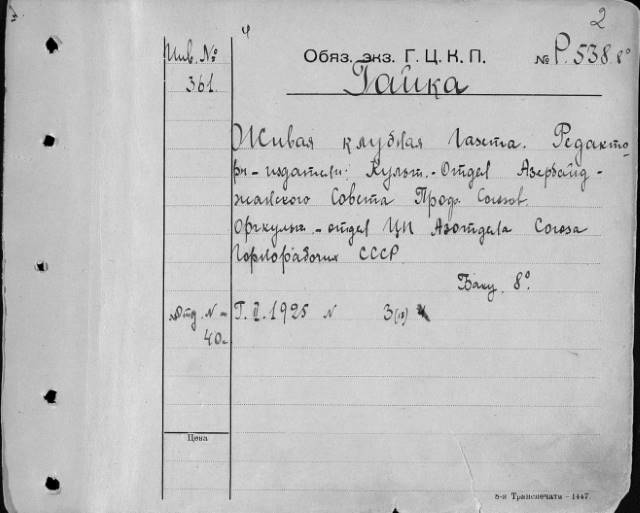 2
Инв. №
361.
Обяз. экз. Г. Ц. К. П.
№ Р. 538. 8°
Гайка
Живая клубная газета. Редакто-
ры-издатели: Культ.-Отдел Азербайд-
жанского Совета Проф. Союзов
Оргкульт.-отдел ЦП Азотдела Союза
Горнорабочих СССР
Баку. 8°.
Отд. №-
40к
Г. II. 1925 № 3(10)
Цена
8-я Транспечати — 1447.